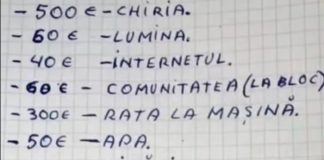 - 500 € - CHIRIA.
- 60 € - LUMINA.
- 40 € - INTERNETUL.
- 60 € - COMUNITATEA (LA BLOC)
- 300€ - RATA LA MAȘINĂ.
- 50€ - APA.